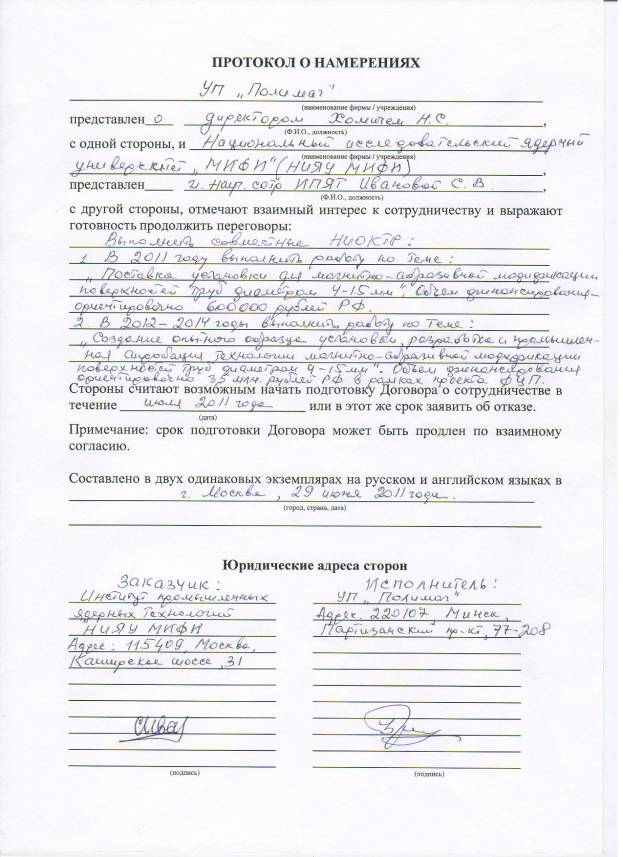 ПРОТОКОЛ О НАМЕРЕНИЯХ
УП „Полимаг"
(наименование фирмы / учреждения)
представлен о директором Хомичем Н.С.,
(Ф.И.О., должность)
с одной стороны, и Национальный исследовательский ядерный
(наименование фирмы / учреждения)
университет „МИФИ" (НИЯУ МИФИ),
представлен гл. науч. сотр ИПЯТ Ивановой С. В.,
(Ф.И.О., должность)
с другой стороны, отмечают взаимный интерес к сотрудничеству и выражают
готовность продолжить переговоры:
Выполнить совместные НИОКТР:
1 В 2011 году выполнить работу по теме:
„Поставка установки для магнитно-абразивной модификации
поверхностей труб диаметром 4-15 мм". Объем финансирования-
ориентировочно 600000 рублей РФ.
2 В 2012-2014 годы выполнить работу по теме:
„Создание опытного образца установки, разработка и промышлен-
ная апробация технологии магнитно-абразивной модификации
поверхностей труб диаметром 4-15 мм". Объем финансирования
ориентировочно 35 млн. рублей РФ в рамках проекта ФЦП.
Стороны считают возможным начать подготовку Договора о сотрудничестве в
течение июля 2011 года или в этот же срок заявить об отказе.
(дата)
Примечание: срок подготовки Договора может быть продлен по взаимному
согласию.
Составлено в двух одинаковых экземплярах на русском и английском языках в
г. Москва, 29 июня 2011 года.
(город, страна, дата)
Юридические адреса сторон
Заказчик:
Институт промышленных
ядерных технологий
НИЯУ МИФИ
Адрес: 115409, Москва,
Каширское шоссе, 31
(подпись)
Исполнитель:
УП „Полимаг"
Адрес. 220107 Минск,
Партизанский пр-кт, 77-208
(подпись)